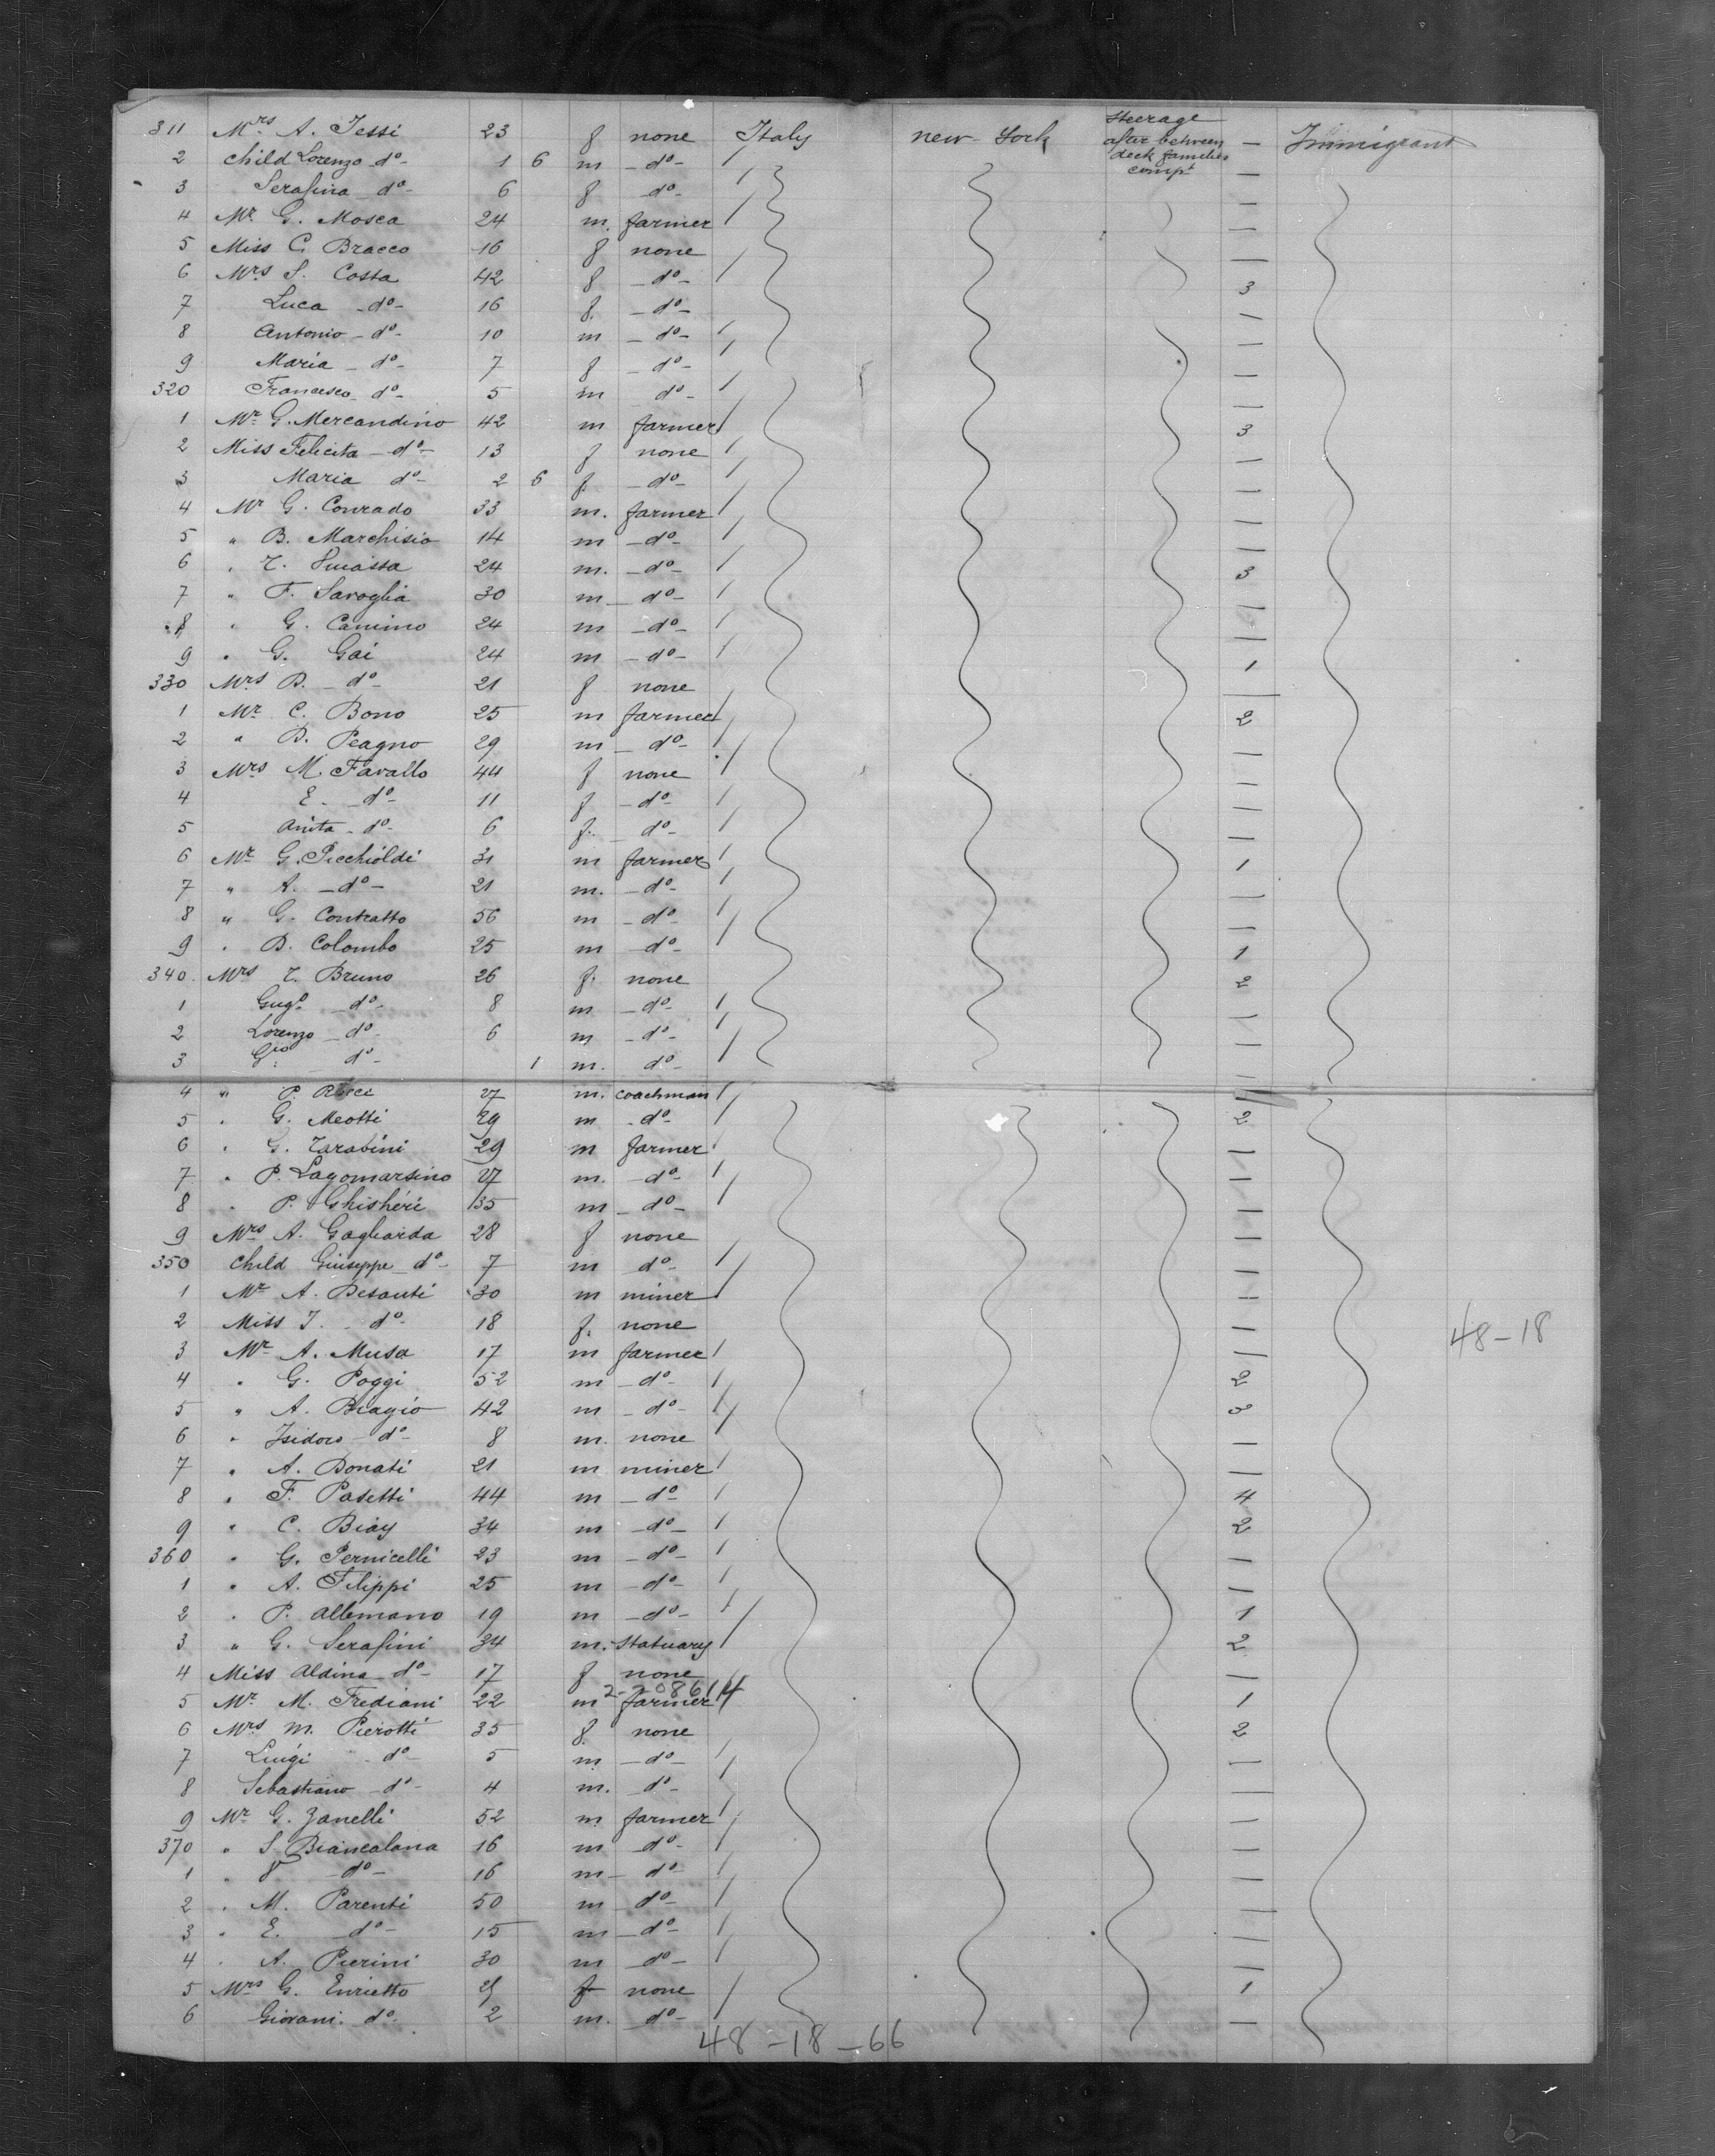 311 Mrs A. Jessi 23 f none Italy new York Steerage after between deck families compt — Immigrant
2 Child Lorenzo do 1 6 m do —
3 Serafina do 6 f do —
4 Mr G. Mosca 24 m. farmer —
5 Miss C. Bracco 16 f none —
6 Mrs S. Costa 42 f do 3
7 Luca do 16 f. do —
8 Antonio do 10 m do —
9 Maria do 7 f do —
320 Francesco do 5 m do —
1 Mr G. Mercandino 42 m farmer 3
2 Miss Felicita do 13 f none —
3 Maria do 2 6 f. do —
4 Mr G. Conrado 33 m. farmer —
5 " B. Marchisio 14 m do —
6 " 24 m. do 3
7 " F. Savoglia 30 m do —
8 " G. Camino 24 m do —
9 " G. Gai 24 m do 1
330 Mrs B. do 21 f none —
1 Mr C. Bono 25 m farmer 2
2 " B. Peagno 29 m do —
3 Mrs M. Favallo 44 f none —
4 E. do 11 f do —
5 Anita do 6 f. do —
6 Mr G. Picchioldi 31 m farmer 1
7 " A. do 21 m. do —
8 " G. Contratto 56 m do —
9 " B. Colombo 25 m do 1
340 Mrs T. Bruno 26 f. none 2
1 Gugo do 8 m do —
2 Lorenzo do 6 m do —
3 Gio do 1 m. do —
4 " P. Rocci 27 m. coachman —
5 " G. Meotti 29 m do 2
6 " G. Tarabini 29 m farmer —
7 " P. Lagomarsino 27 m. do —
8 " P. Ghisheri 35 m do —
9 Mrs A. Gagliarda 28 f none —
350 Child Giuseppe do 7 m do —
1 Mr A. Desanti 30 m miner —
2 Miss J. do 18 f. none —
48-18
3 Mr A. Musa 17 m farmer —
4 " G. Poggi 52 m do 2
5 " A. Biagio 42 m do 3
6 " Isidoro do 8 m. none —
7 " A. Donati 21 m miner —
8 " F. Pasetti 44 m do 4
9 " C. Biay 34 m do 2
360 " G. Pernicelli 23 m do —
1 " A. Filippi 25 m do —
2 " P. Allemano 19 m do 1
3 " G. Serafini 34 m. statuary 2
4 Miss Aldina do 17 f none —
2-208614
5 Mr M. Frediani 22 m farmer 1
6 Mrs M. Pierotti 35 f. none 2
7 Luigi do 5 m do —
8 Sebastiano do 4 m. do —
9 Mr G. Zanelli 52 m farmer —
370 " S. Biancalana 16 m do —
1 " do 16 m do —
2 " M. Parenti 50 m do —
3 " E. do 15 m do —
4 " A. Pierini 30 m do —
5 Mrs G. Enrietto f none 1
6 Giovani do 2 m. do —
48-18-66